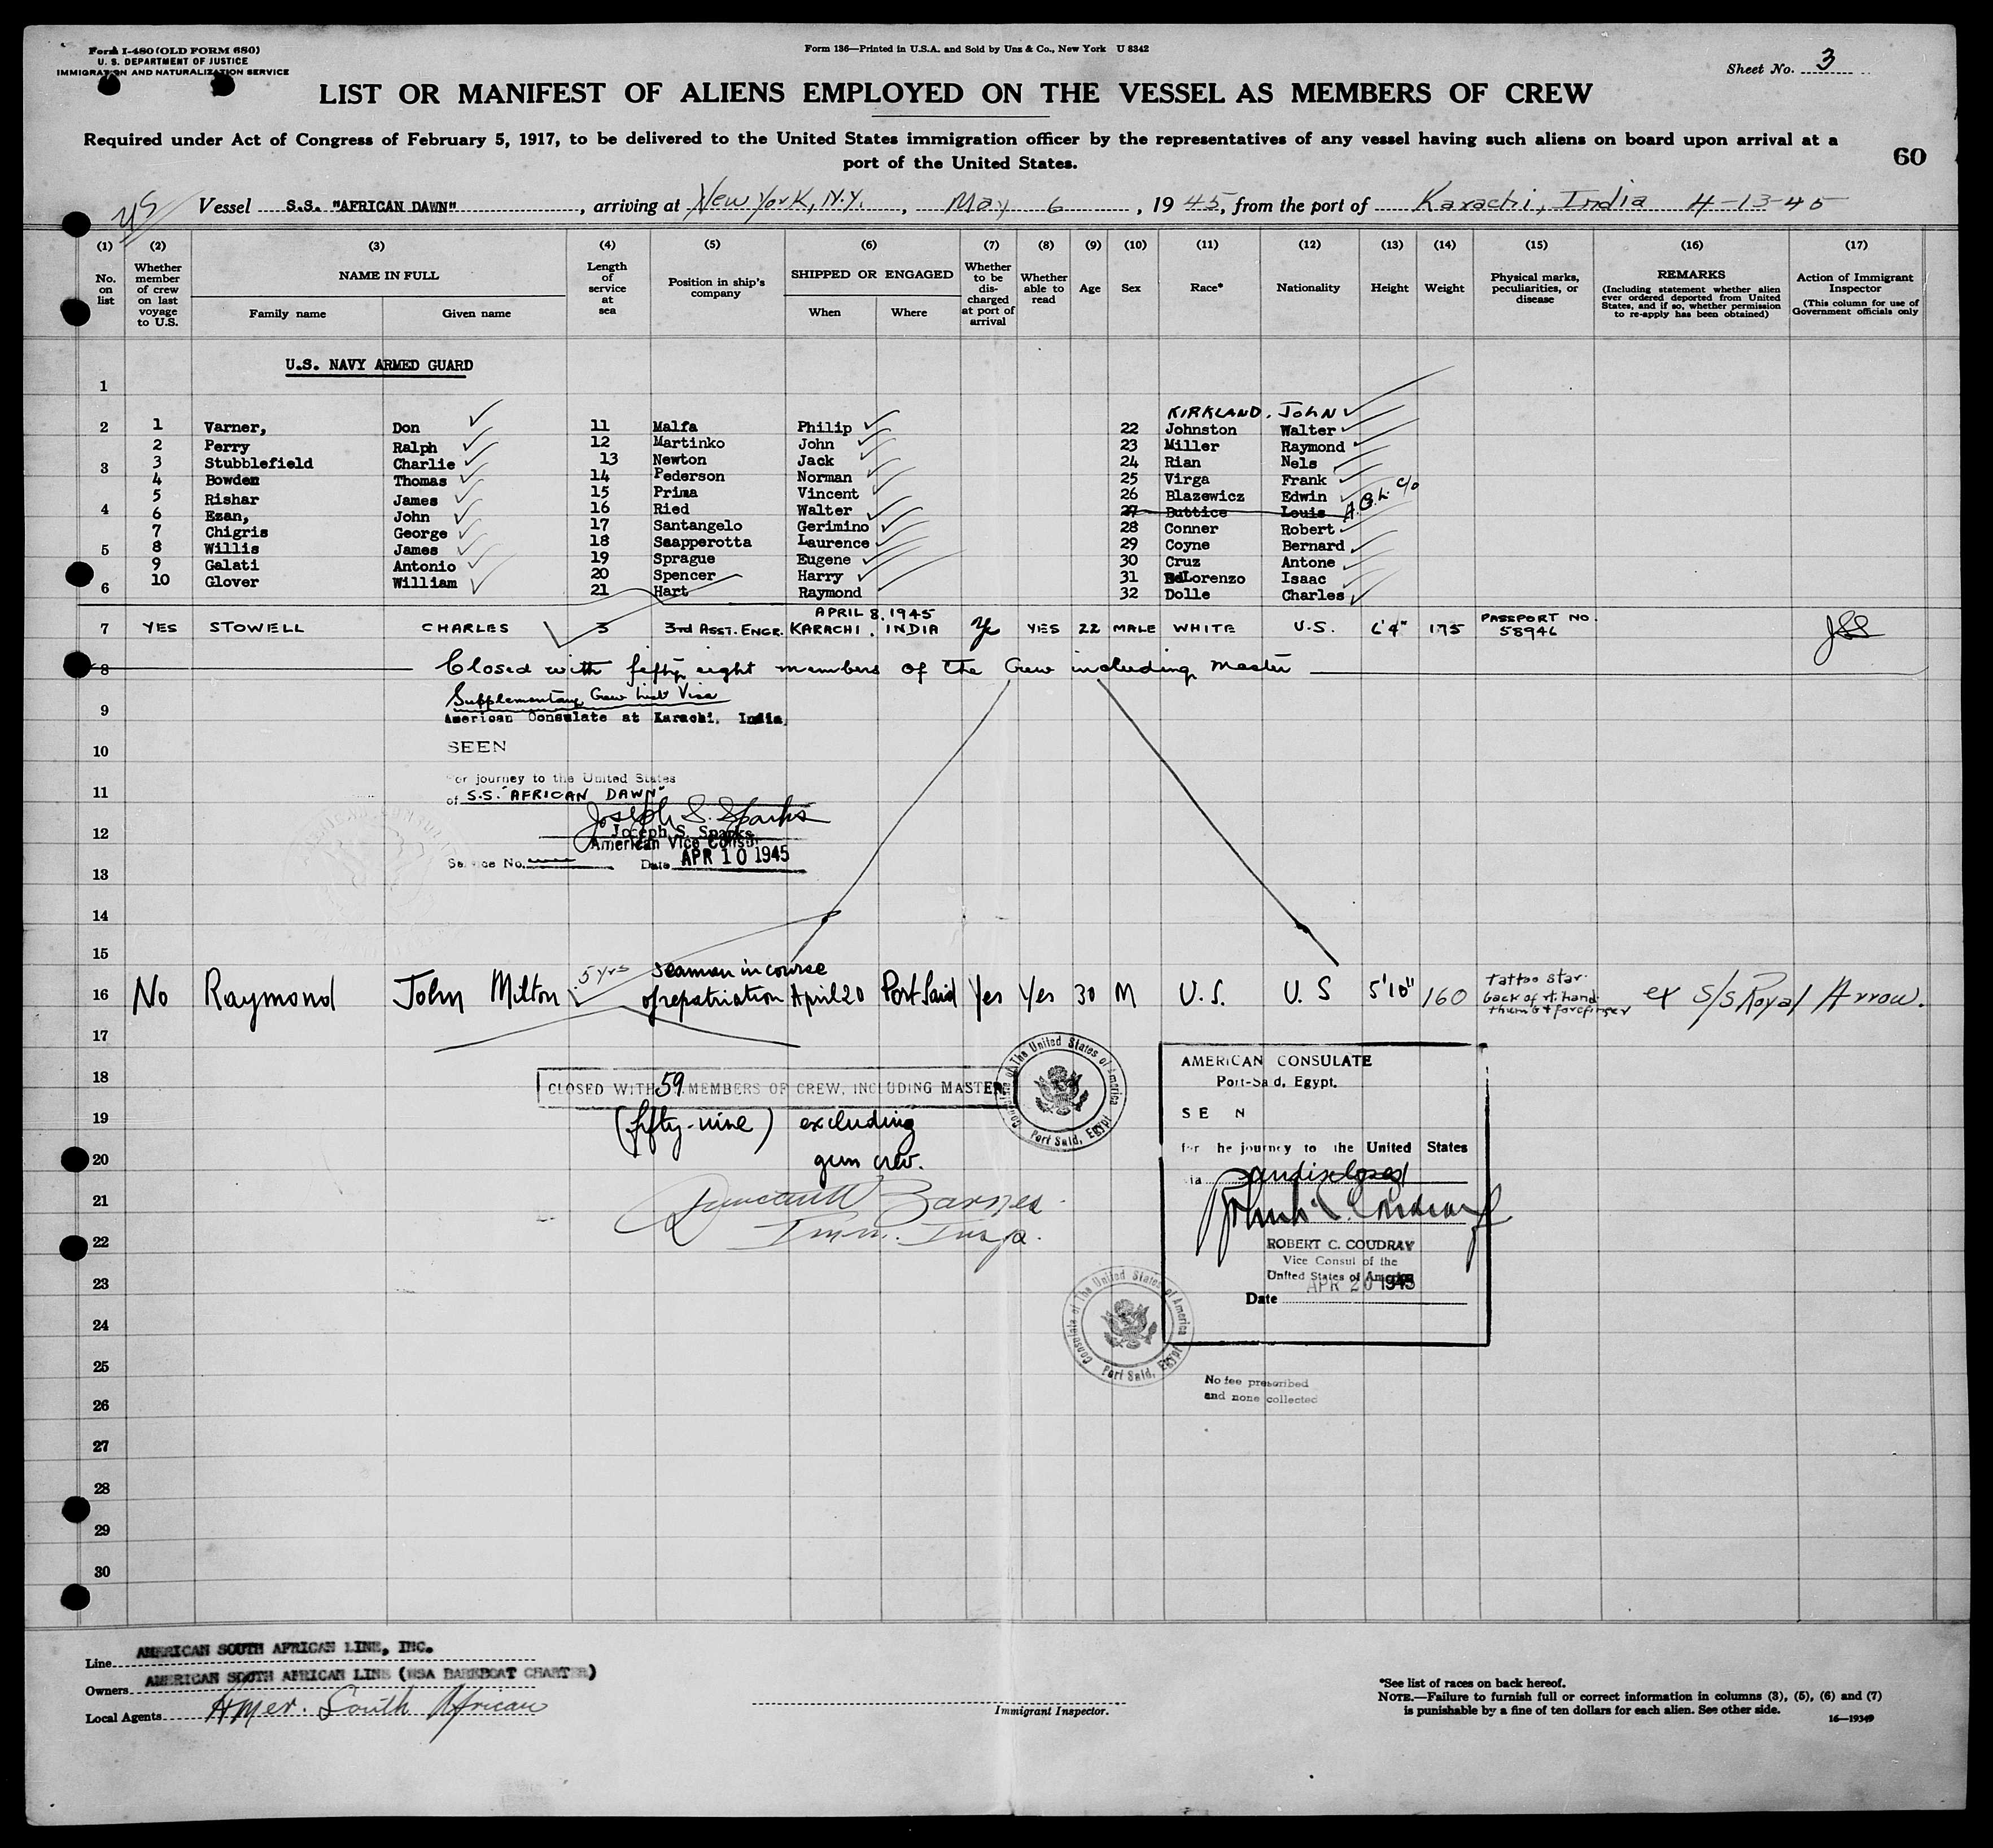 Form I-480 (OLD FORM 680)
U. S. DEPARTMENT OF JUSTICE
IMMIGRATION AND NATURALIZATION SERVICE
Form 136—Printed in U.S.A. and Sold by Unz & Co., New York U 8342
Sheet No. 3
LIST OR MANIFEST OF ALIENS EMPLOYED ON THE VESSEL AS MEMBERS OF CREW
Required under Act of Congress of February 5, 1917, to be delivered to the United States immigration officer by the representatives of any vessel having such aliens on board upon arrival at a
port of the United States.
60
US
Vessel S.S. "AFRICAN DAWN", arriving at New York, N.Y., May 6, 1945, from the port of Karachi, India 4-13-45
(1) (2) (3) (4) (5) (6) (7) (8) (9) (10) (11) (12) (13) (14) (15) (16) (17)
No. on list
Whether member of crew on last voyage to U.S.
NAME IN FULL
Family name
Given name
Length of service at sea
Position in ship's company
SHIPPED OR ENGAGED
When
Where
Whether to be discharged at port of arrival
Whether able to read
Age
Sex
Race*
Nationality
Height
Weight
Physical marks, peculiarities, or disease
REMARKS
(Including statement whether alien ever ordered deported from United States, and if so, whether permission to re-apply has been obtained)
Action of Immigrant Inspector
(This column for use of Government officials only
U.S. NAVY ARMED GUARD
1
KIRKLAND, JOHN
2
1 Varner, Don 11 Malfa Philip 22 Johnston Walter
2 Perry Ralph 12 Martinko John 23 Miller Raymond
3
3 Stubblefield Charlie 13 Newton Jack 24 Rian Nels
4 Bowden Thomas 14 Pederson Norman 25 Virga Frank
5 Rishar James 15 Prima Vincent 26 Blazewicz Edwin
4
6 Ezan, John 16 Ried Walter 27 Buttice Louis
7 Chigris George 17 Santangelo Gerimino 28 Conner Robert
5
8 Willis James 18 Saapperotta Laurence 29 Coyne Bernard
9 Galati Antonio 19 Sprague Eugene 30 Cruz Antone
6
10 Glover William 20 Spencer Harry 31 DeLorenzo Isaac
21 Hart Raymond 32 Dolle Charles
7 YES STOWELL CHARLES 3 3rd ASST. ENGR. APRIL 8, 1945 KARACHI, INDIA YES 22 MALE WHITE U.S. 6'4" 175 PASSPORT NO. 58946
8 Closed with fifty eight members of the Crew including Master
Supplementary Crew List Visa
9
American Consulate at Karachi, India
10
SEEN
For journey to the United States
11
of S.S. "AFRICAN DAWN"
Joseph S. Sparks
12
Joseph S. Sparks
American Vice Consul
Service No. Date APR 10 1945
13
14
15
16 No Raymond John Milton 5 yrs Seaman in course of repatriation April 20 Port Said Yes Yes 30 M U.S. U.S 5'10" 160 tattoo star back of rt. hand thumb & forefinger ex S/S Royal Arrow.
17
18
CLOSED WITH 59 MEMBERS OF CREW, INCLUDING MASTER
Consulate of The United States of America
Port Said, Egypt
19
(fifty-nine) excluding
20
gun crew.
21
Barnes
22
Imm. Insp.
AMERICAN CONSULATE
Port-Sa d, Egypt.
SE N
for he journey to the United States
ia undisclosed
ROBERT C. COUDRAY
Vice Consul of the
United States of America
APR 20 1945
Date
23
24
Consulate of The United States of America
Port Said, Egypt
25
No fee prescribed
and none collected
26
27
28
29
30
Line AMERICAN SOUTH AFRICAN LINE, INC.
Owners AMERICAN SOUTH AFRICAN LINE (WSA BAREBOAT CHARTER)
Local Agents Amer. South African
Immigrant Inspector.
*See list of races on back hereof.
NOTE.—Failure to furnish full or correct information in columns (3), (5), (6) and (7)
is punishable by a fine of ten dollars for each alien. See other side.
16—19349